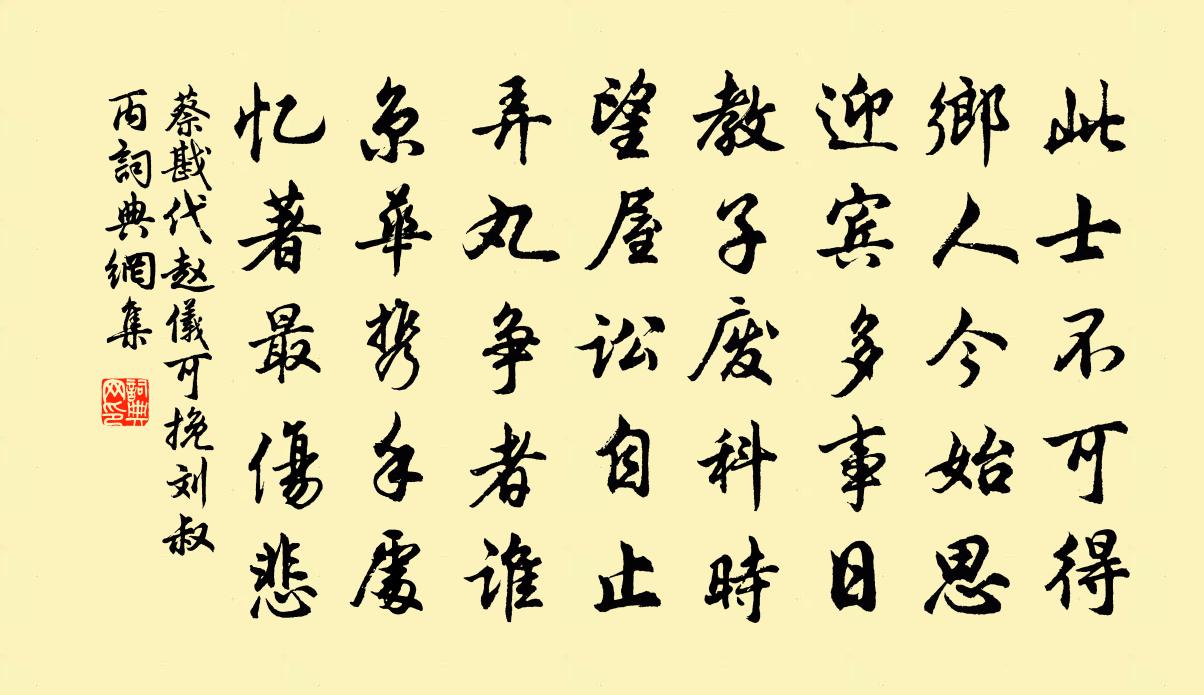 此士不可得
鄉人今始思
迎宾多事日
教子废科時
望屋讼自止
弄丸争者谁
京華携手處
忆著最傷悲
蔡戡代赵儀可挽刘叔
丙詞典網集
詞典
网印